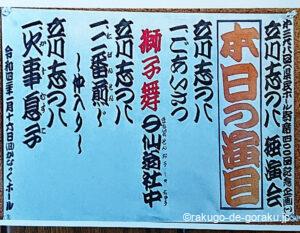 本日の演目
県民ホール寄席
立川志の八独演会
立川志の八
一、ごあいさつ
獅子舞 社中
立川志の八
一、二番煎じ
〜仲入り〜
立川志の八
一、火事息子
令和四年一月十六日(日)かなっくホール
©rakugo-de-goraku.jp